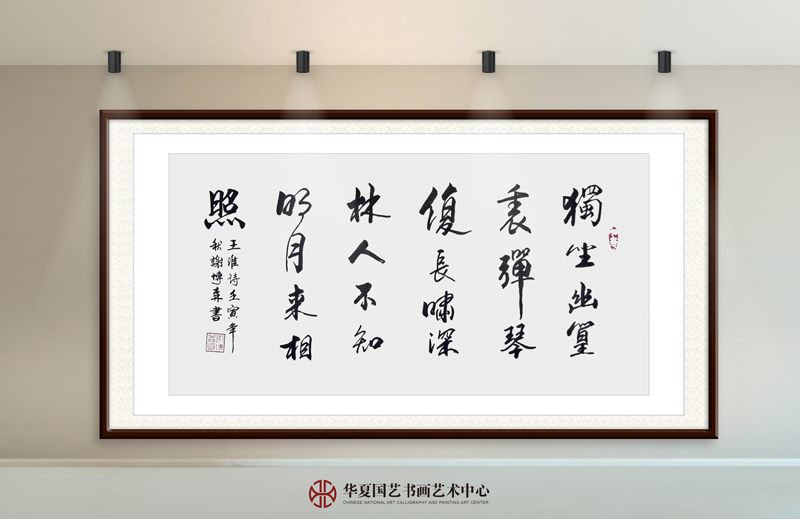 獨坐幽篁
裏彈琴
復長嘯深
林人不知
明月来相
照
王維诗壬寅年
秋謝博森書
华夏国艺书画艺术中心
CHINESE NATIONAL ART CALLIGRAPHY AND PAINTING ART CENTER